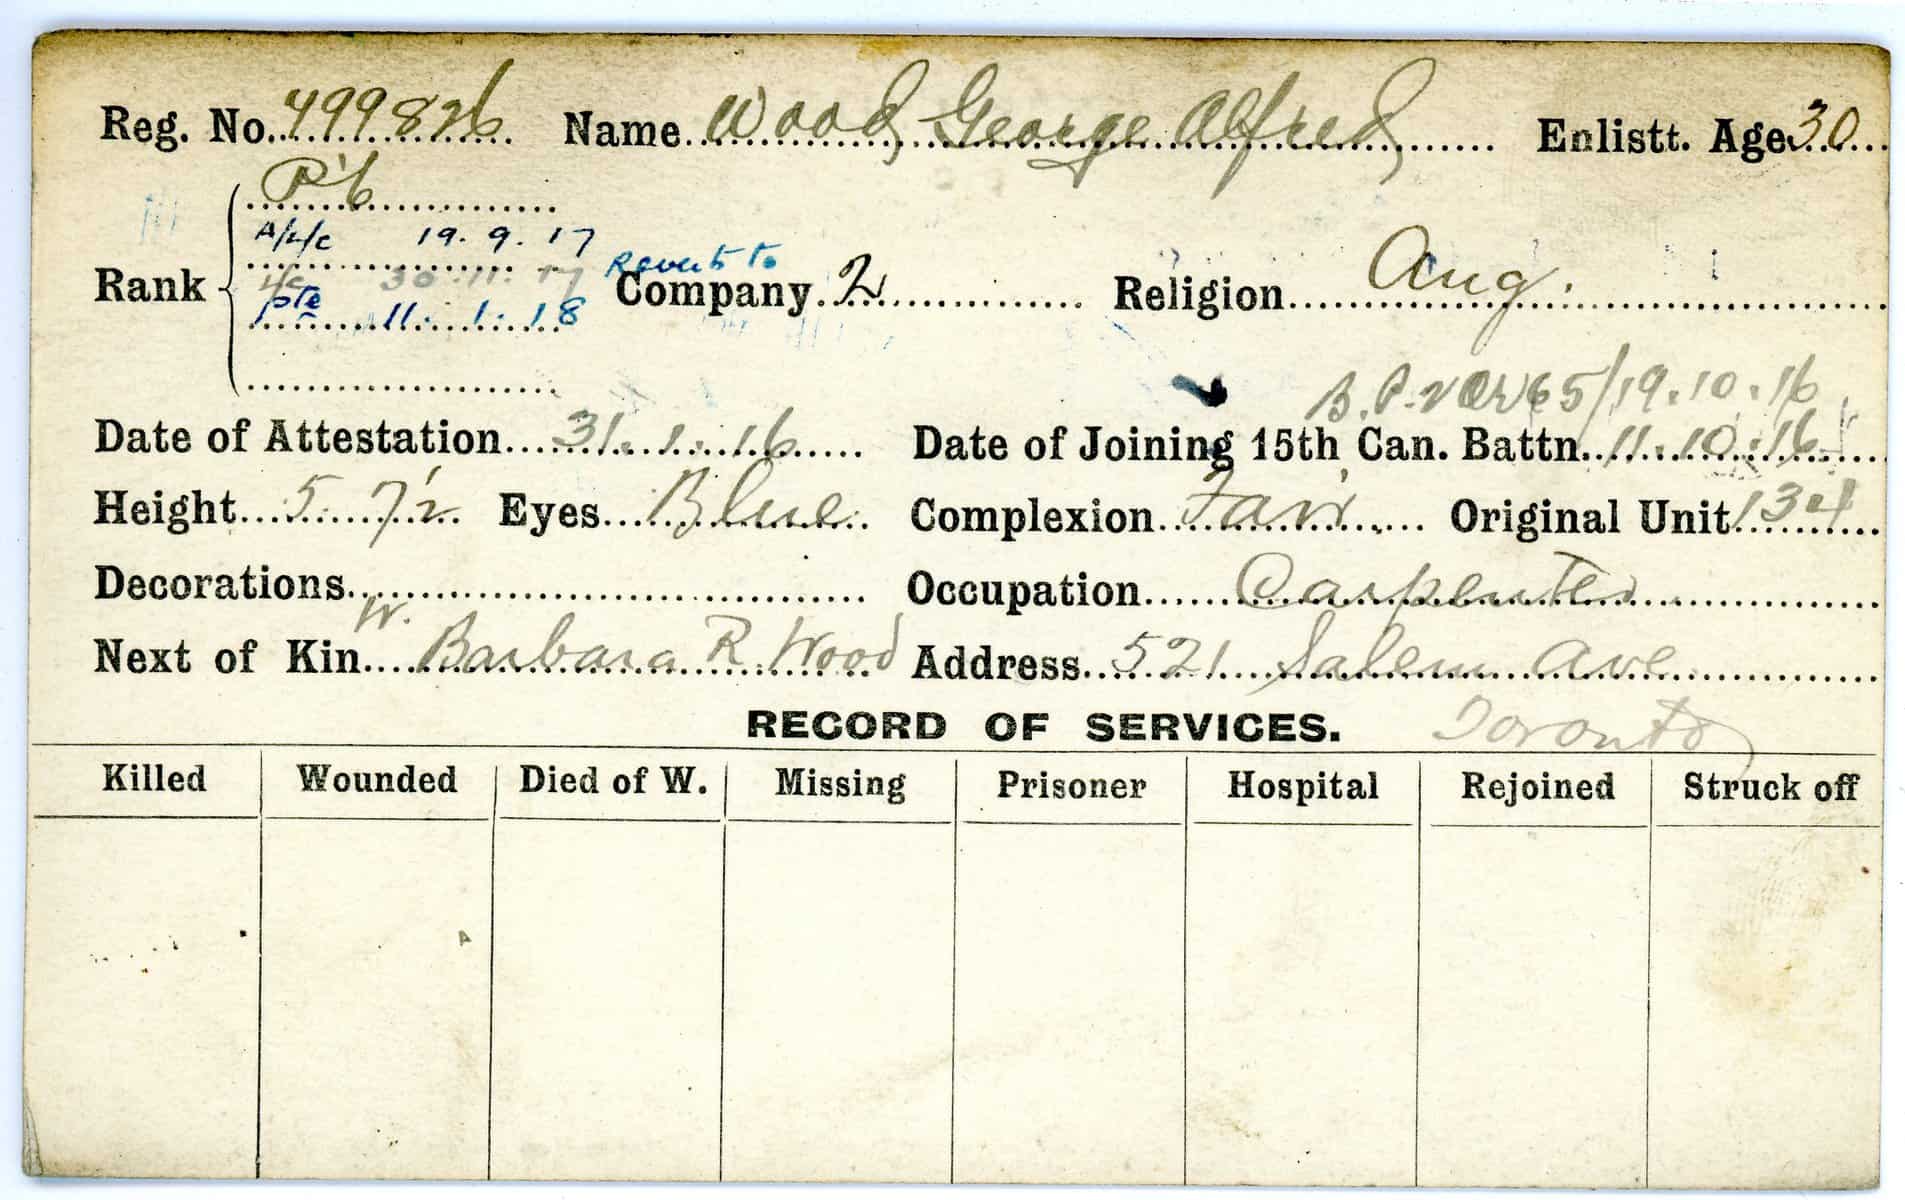 Reg. No. 799826 Name Wood, George Alfred Enlistt. Age 30
Pte
A/L/c 19. 9. 17
L/c 30. 11. 17 Reverts to
Rank Pte 11. 1. 18 Company 2 Religion Ang.
B. P. 2 65/19.10.16
Date of Attestation 31. 1. 16 Date of Joining 15th Can. Battn. 11.10.16
Height 5 7½ Eyes Blue Complexion Fair Original Unit 134
Decorations Occupation Carpenter
W.
Next of Kin Barbara R. Wood Address 521 Salem Ave
RECORD OF SERVICES. Toronto
Killed Wounded Died of W. Missing Prisoner Hospital Rejoined Struck off